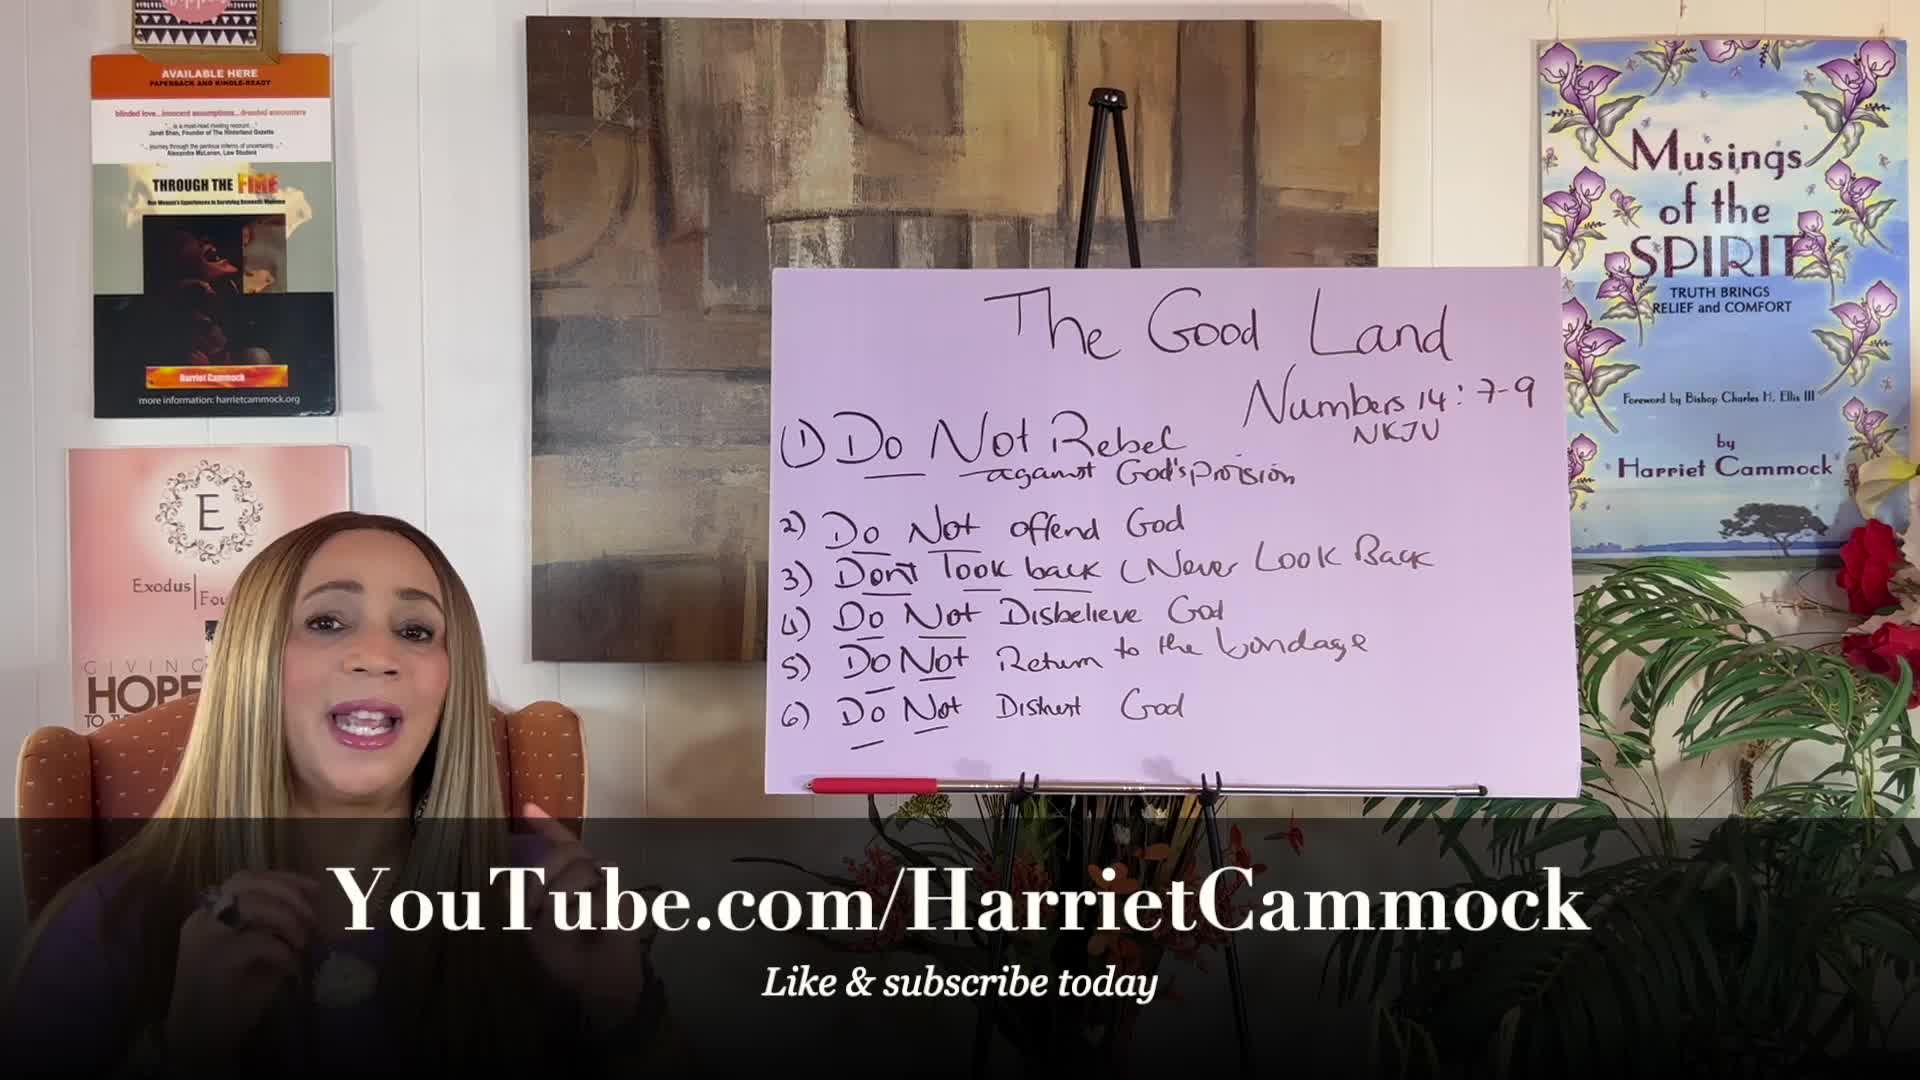 AVAILABLE HERE
PAPERBACK AND KINDLE-READY
blinded love...innocent assumptions...dreaded encounters
"... is a must-read riveting recount..."
Janet Shan, Founder of The Hinterland Gazette
"... journey through the perilous inferno of uncertainty ..."
Alexandra McLaren, Law Student
THROUGH THE FIRE
One Woman's Experiences in Surviving Domestic Violence
Harriet Cammock
more information: harrietcammock.org
E
Exodus
Fou
GIVING
HOPE
The Good Land
Numbers 14:7-9
NKJV
1) Do Not Rebel
against God's provision
2) Do Not offend God
3) Don't Look back (Never Look Back
4) Do Not Disbelieve God
5) Do Not Return to the bondage
6) Do Not Distrust God
Musings
of the
SPIRIT
TRUTH BRINGS
RELIEF and COMFORT
Foreword by Bishop Charles H. Ellis III
by
Harriet Cammock
YouTube.com/HarrietCammock
Like & subscribe today